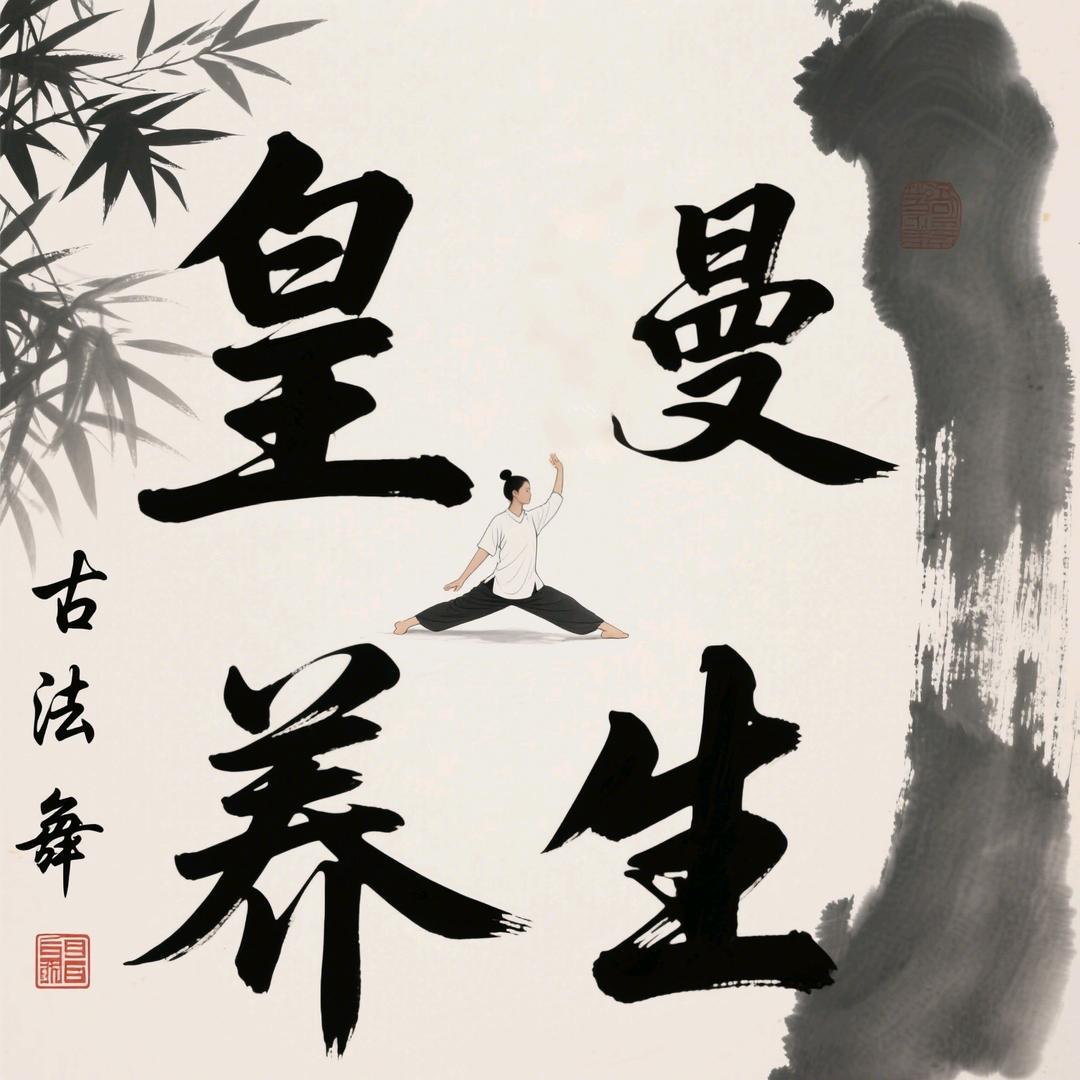 皇曼
养生
古法舞